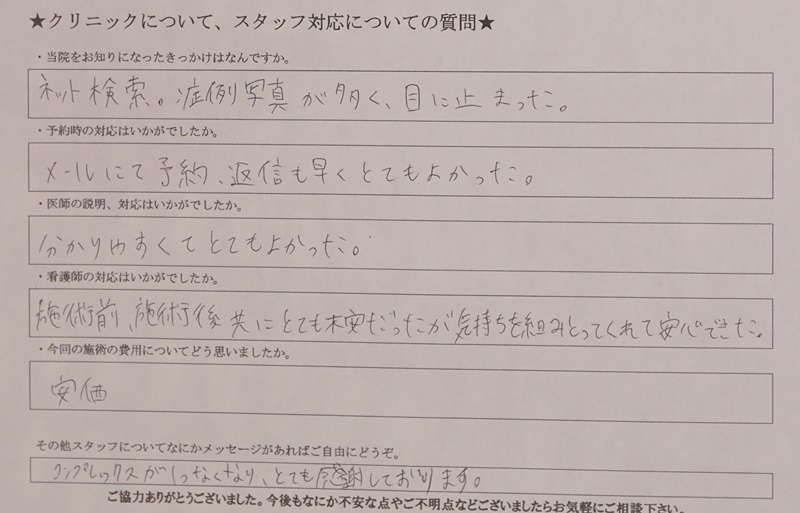 ★クリニックについて、スタッフ対応についての質問★
・当院をお知りになったきっかけはなんですか。
ネット検索。症例写真が多く、目に止まった。
・予約時の対応はいかがでしたか。
メールにて予約、返信も早くとてもよかった。
・医師の説明、対応はいかがでしたか。
分かりやすくてとてもよかった。
・看護師の対応はいかがでしたか。
施術前、施術後共にとても不安だったが気持ちを組みとってくれて安心できた。
・今回の施術の費用についてどう思いましたか。
安価
その他スタッフについてなにかメッセージがあればご自由にどうぞ。
コンプレックスが1つなくなり、とても感謝しております。
ご協力ありがとうございました。今後もなにか不安な点やご不明点などございましたらお気軽にご相談下さい。